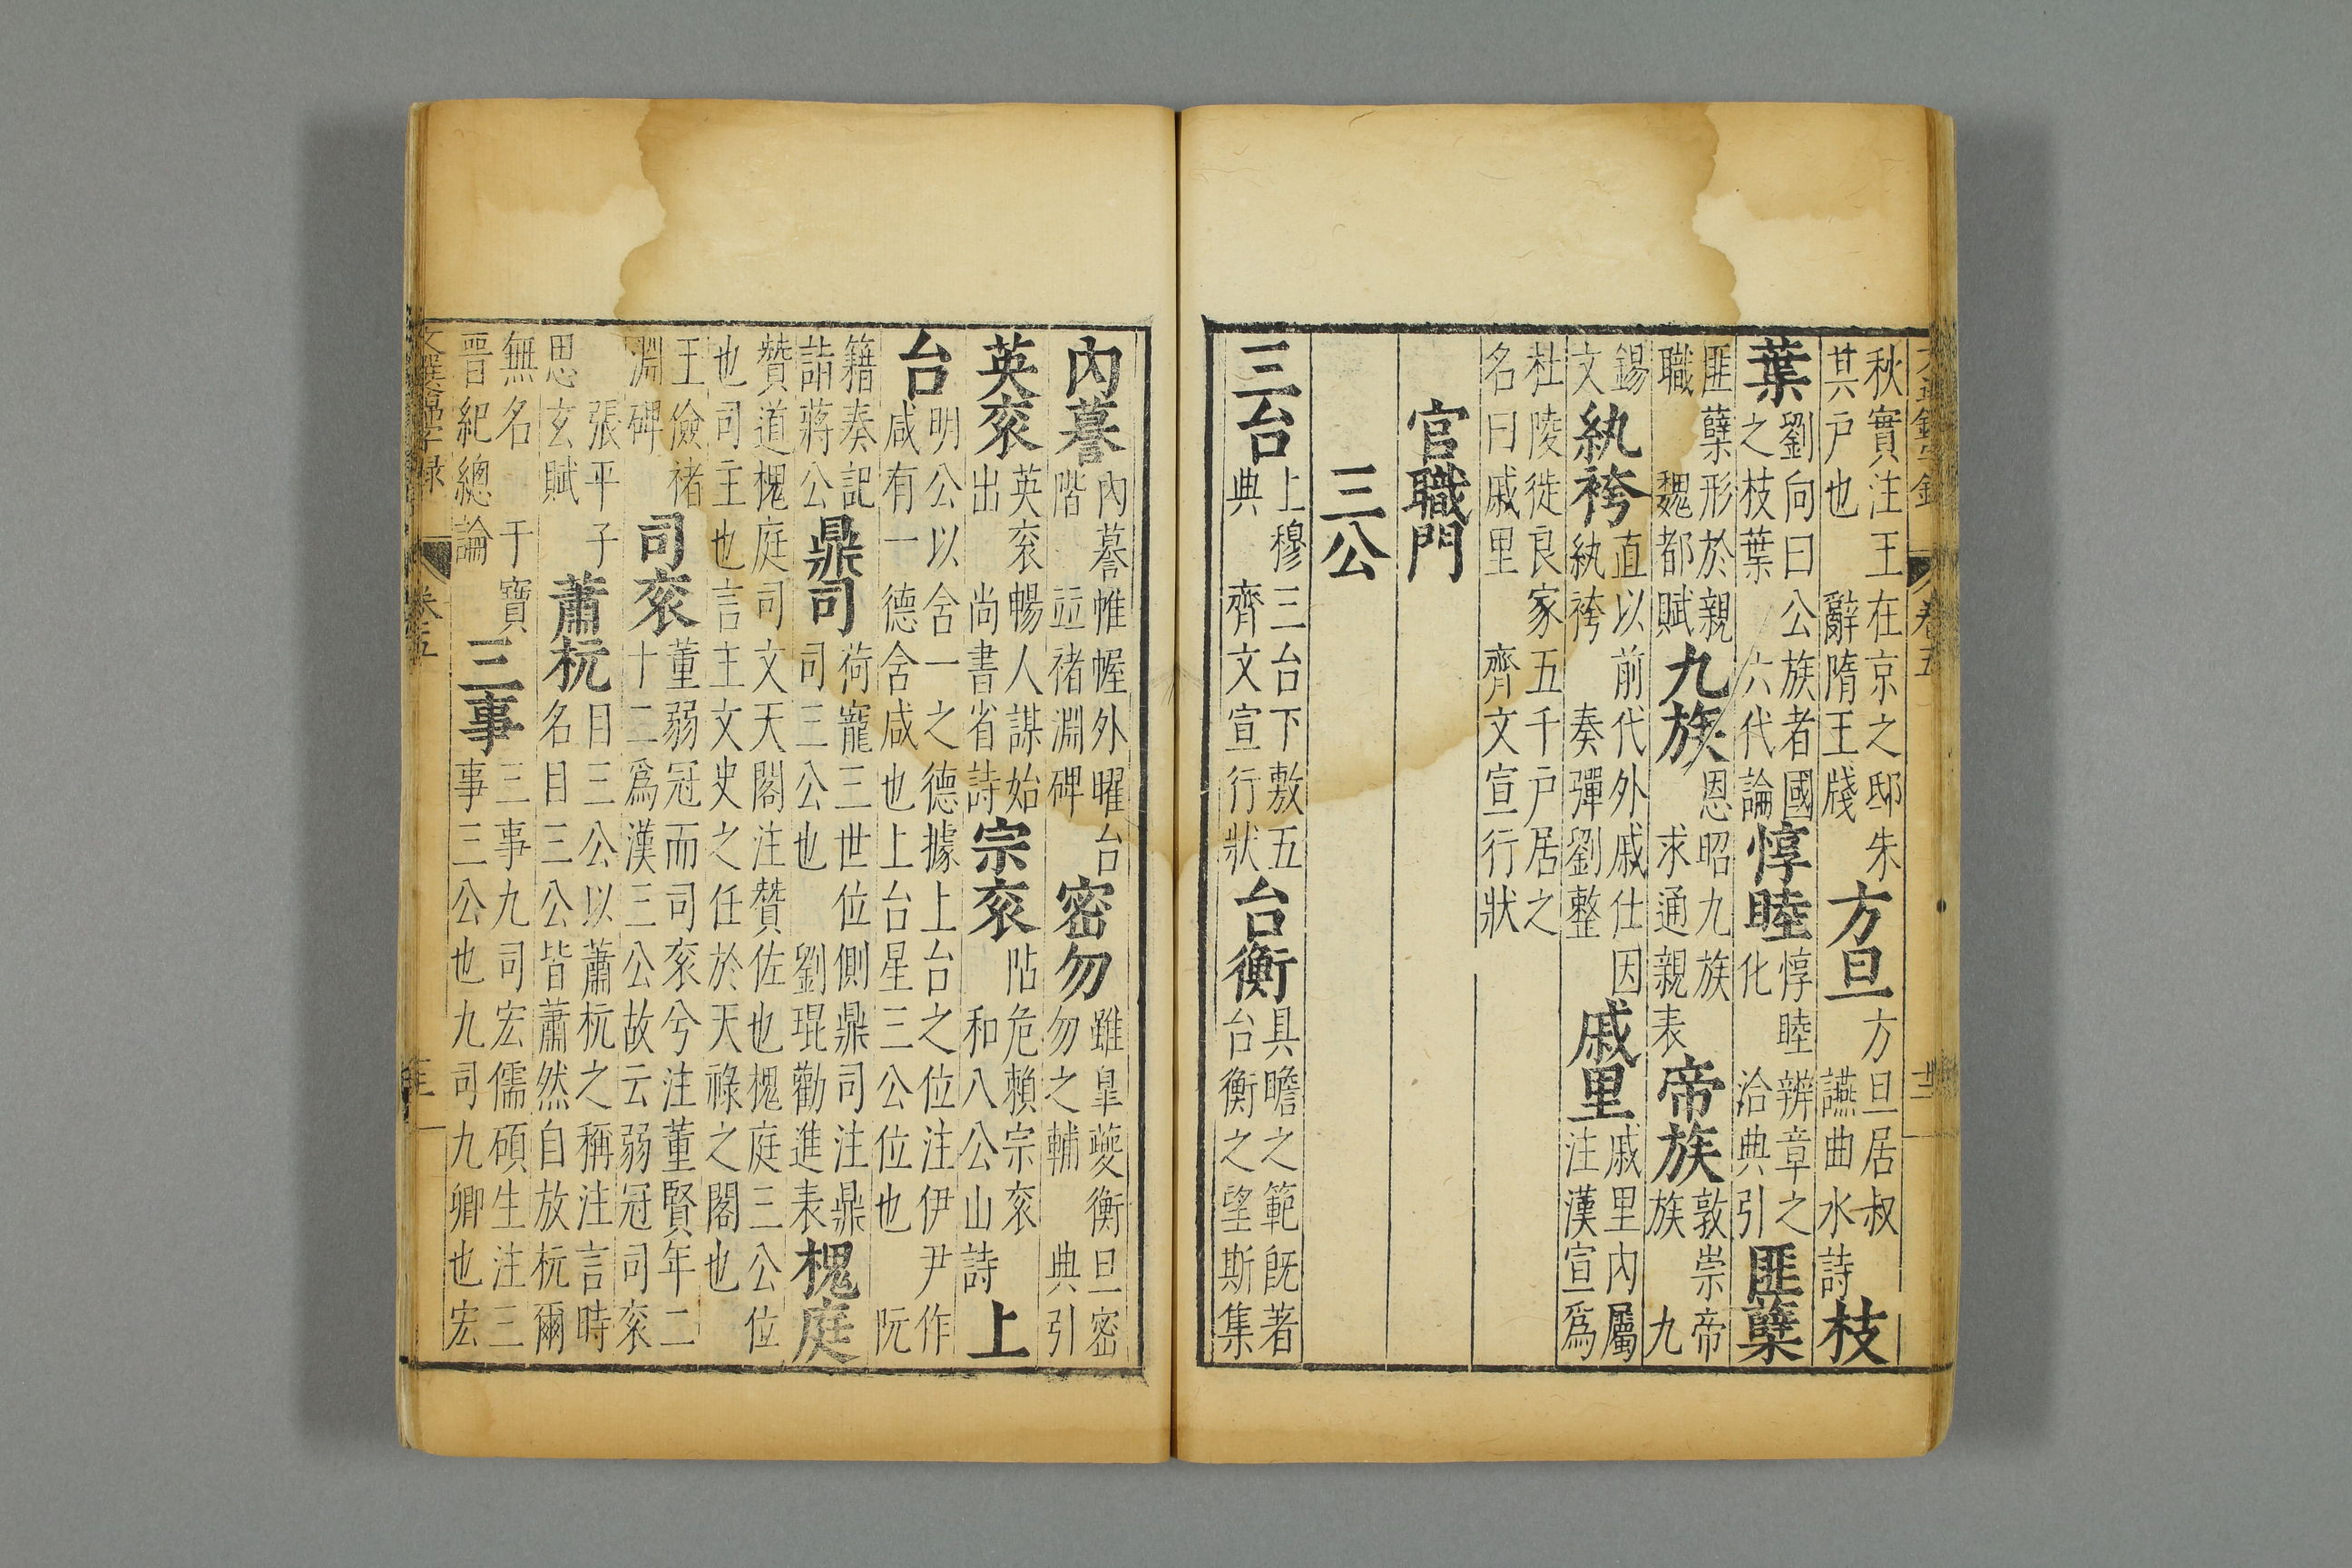 卷五
秋實注王在京之邸朱其戶也 辭隋王牋 方旦 方旦居叔讌曲水詩 枝
葉 劉向曰公族者國之枝葉 六代論 惇睦 惇睦辨章之化 洽典引 匪蘖
匪蘖形於親職 魏都賦 九族 恩昭九族求通親表 帝族 敦崇帝族 九
錫文 紈袴 直以前代外戚仕因紈袴 奏彈劉整 戚里 戚里內屬注漢宣爲
杜陵徙良家五千戶居之名曰戚里 齊文宣行狀
官職門
三公
三台 上穆三台下敷五典 齊文宣行狀 台衡 具瞻之範旣著台衡之望斯集
內謩 內謩帷幄外曜台階 竝褚淵碑 密勿 雖皐夔衡旦密勿之輔 典引
英衮 英衮暢人謀始出 尚書省詩 宗衮 阽危賴宗衮 和八公山詩 上
台 明公以舍一之德據上台之位注伊尹作咸有一德舍咸也上台星三公位也 阮
籍奏記詣蔣公 鼎司 荷寵三世位側鼎司注鼎司三公也 劉琨勸進表 槐庭
贊道槐庭司文天閣注贊佐也槐庭三公位也司主也言主文史之任於天祿之閣也
王儉褚淵碑 司衮 董弱冠而司衮兮注董賢年二十二爲漢三公故云弱冠司衮
張平子思玄賦 蕭杬 目三公以蕭杬之稱注言時名目三公皆蕭然自放杬爾
無名 于寶晉紀總論 三事 三事九司宏儒碩生注三事三公也九司九卿也宏
文選錦字錄 卷五